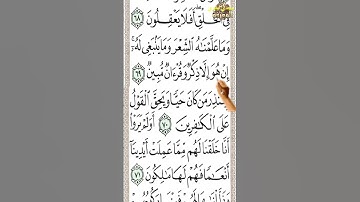 فِى ٱلْخَلْقِ ۖ أَفَلَا يَعْقِلُونَ ٦٨
وَمَا عَلَّمْنَٰهُ ٱلشِّعْرَ وَمَا يَنۢبَغِى لَهُۥٓ ۚ
إِنْ هُوَ إِلَّا ذِكْرٌ وَقُرْءَانٌ مُّبِينٌ ٦٩
لِّيُنذِرَ مَن كَانَ حَيًّا وَيَحِقَّ ٱلْقَوْلُ
عَلَى ٱلْكَٰفِرِينَ ٧٠ أَوَلَمْ يَرَوْا۟
أَنَّا خَلَقْنَا لَهُم مِّمَّا عَمِلَتْ أَيْدِينَآ
أَنْعَٰمًا فَهُمْ لَهَا مَٰلِكُونَ ٧١